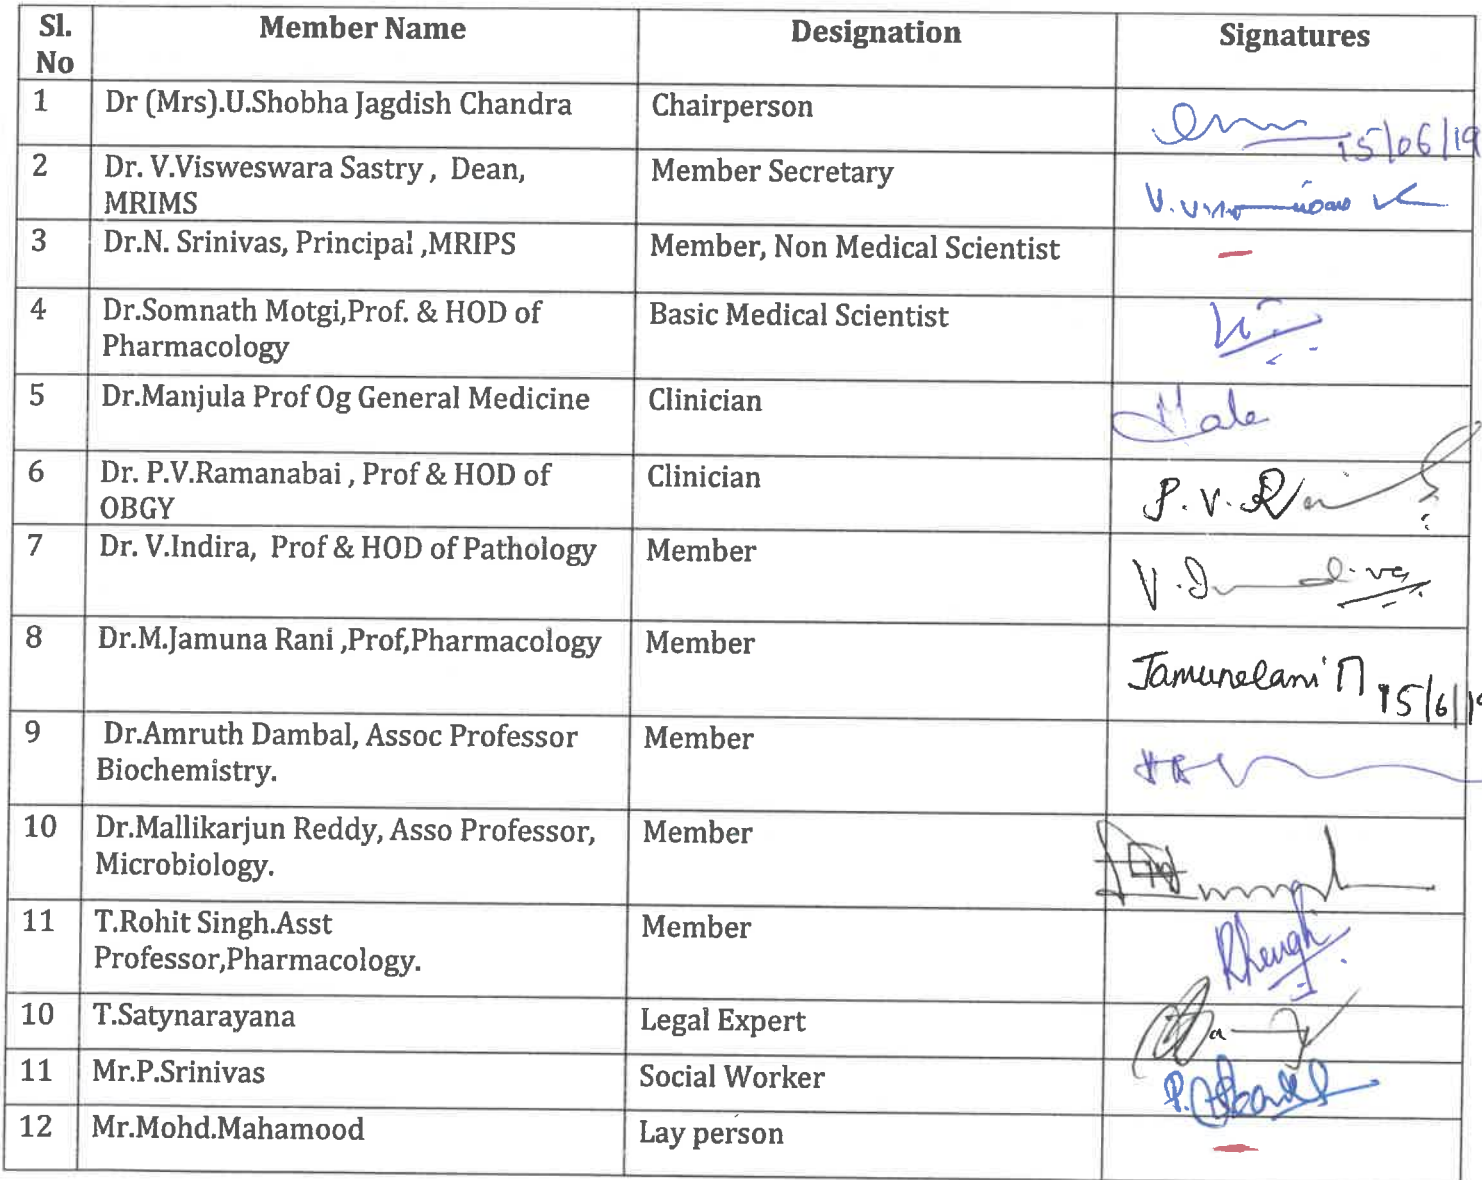 Sl. No Member Name Designation Signatures
1 Dr (Mrs).U.Shobha Jagdish Chandra Chairperson 15/06/19
2 Dr. V.Visweswara Sastry , Dean, Member Secretary
MRIMS
3 Dr.N. Srinivas, Principal ,MRIPS Member, Non Medical Scientist -
4 Dr.Somnath Motgi,Prof. & HOD of Basic Medical Scientist
Pharmacology
5 Dr.Manjula Prof Og General Medicine Clinician
6 Dr. P.V.Ramanabai , Prof & HOD of Clinician P.V.
OBGY
7 Dr. V.Indira, Prof & HOD of Pathology Member V.
8 Dr.M.Jamuna Rani ,Prof,Pharmacology Member 15/6/19
9 Dr.Amruth Dambal, Assoc Professor Member
Biochemistry.
10 Dr.Mallikarjun Reddy, Asso Professor, Member
Microbiology.
11 T.Rohit Singh.Asst Member
Professor,Pharmacology.
10 T.Satynarayana Legal Expert
11 Mr.P.Srinivas Social Worker P.
12 Mr.Mohd.Mahamood Lay person -